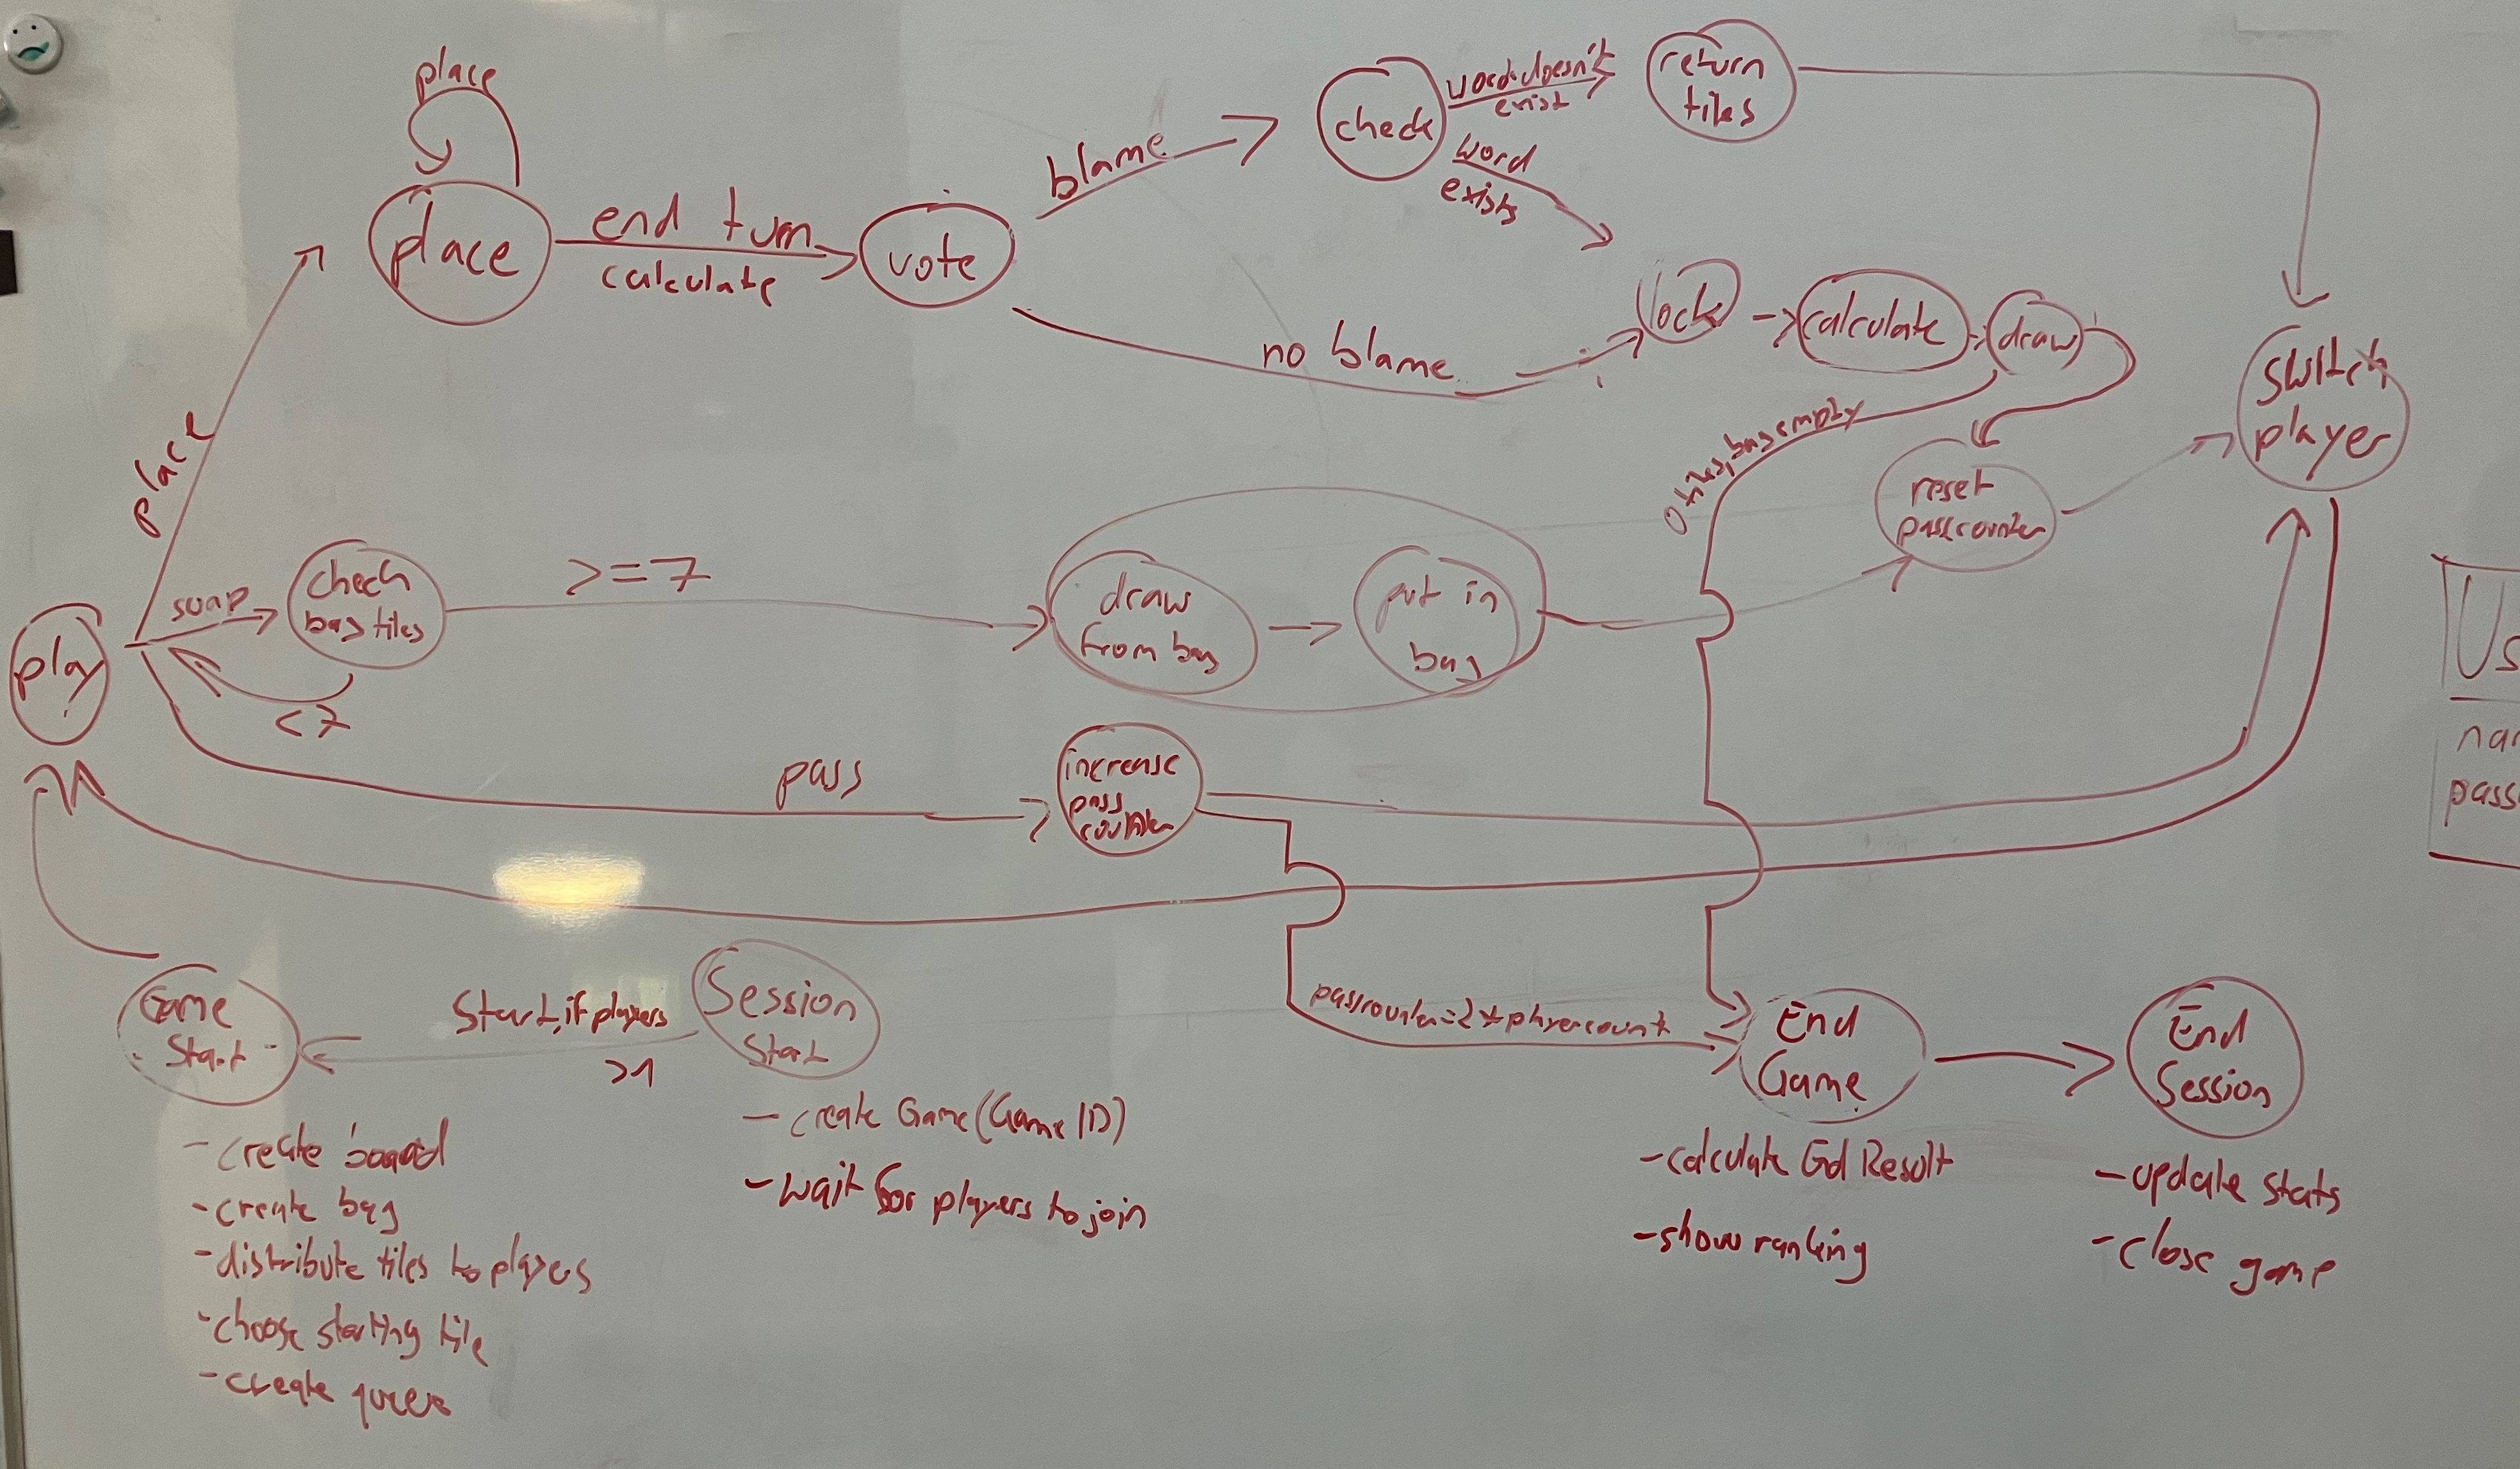 place
place
end turn
calculate
vote
blame
check
word doesn't
exist
return
tiles
word
exists
no blame
lock
calculate
draw
switch
player
0 tiles, bag empty
reset
passcounter
place
swap
check
bag tiles
>=7
<7
draw
from bag
put in
bag
play
pass
increase
pass
counter
Us
nam
pass
Game
Start
Start, if players
>1
Session
Start
passcounter=2*playercount
End
Game
End
Session
- create board
- create bag
- distribute tiles to players
- choose starting tile
- create
- create Game (Game ID)
- wait for players to join
- calculate Result
- show ranking
- update stats
- close game